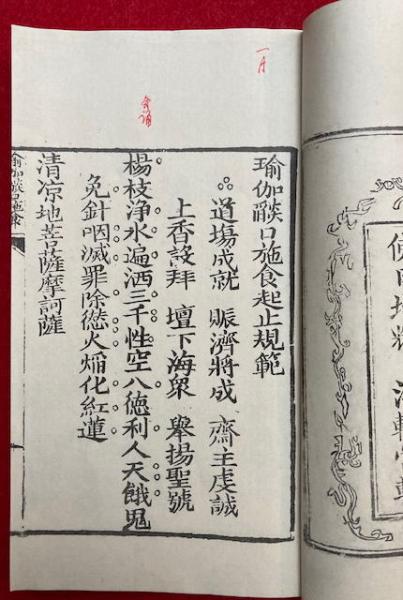 瑜伽燄口施食起止規範
道場成就 賑濟將成 齋主虔誠
上香設拜 壇下海衆 舉揚聖號
楊枝浄水遍洒三千性空八德利人天餓鬼
免針咽滅罪除愆火焔化紅蓮
清凉地菩薩摩訶薩